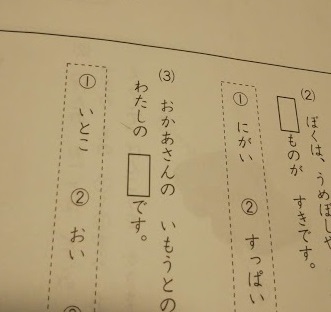 (2) ぼくは、うめぼしや
□ものが すきです。
① にがい ② すっぱい
(3) おかあさんの いもうとの
わたしの □です。
① いとこ ② おい